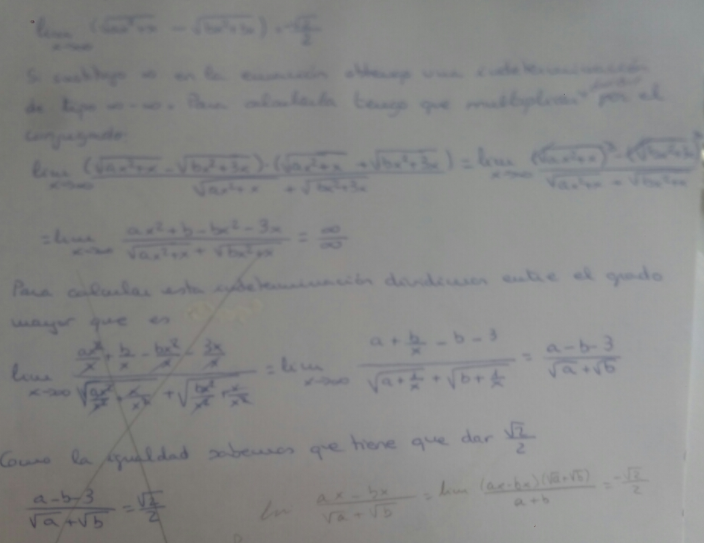 lim x→∞ (√ax²+x − √bx²+3x) = −√2/2
Si sustituyo ∞ en la ecuación obtengo una indeterminación
de tipo ∞-∞. Para calcularla tengo que multiplicar por el
conjugado:
lim x→∞ (√ax²+x − √bx²+3x)·(√ax²+x + √bx²+3x) / √ax²+x + √bx²+3x = lim x→∞ (√ax²+x)² − (√bx²+3x)² / √ax²+x + √bx²+x
= lim x→∞ ax²+b−bx²−3x / √ax²+x + √bx²+x = ∞/∞
Para calcular esta indeterminación dividimos entre el grado
mayor que es
lim x→∞ ax²/x + b/x − bx²/x − 3x/x / √ax²/x² + x/x² + √bx²/x² + x/x² = lim x→∞ a + b/x − b − 3 / √a+1/x + √b+1/x = a−b−3 / √a+√b
Como la igualdad sabemos que tiene que dar √2/2
a−b−3 / √a+√b = √2/2
lim ax−bx / √a+√b = lim (ax−bx)(√a+√b) / a+b = −√2/2